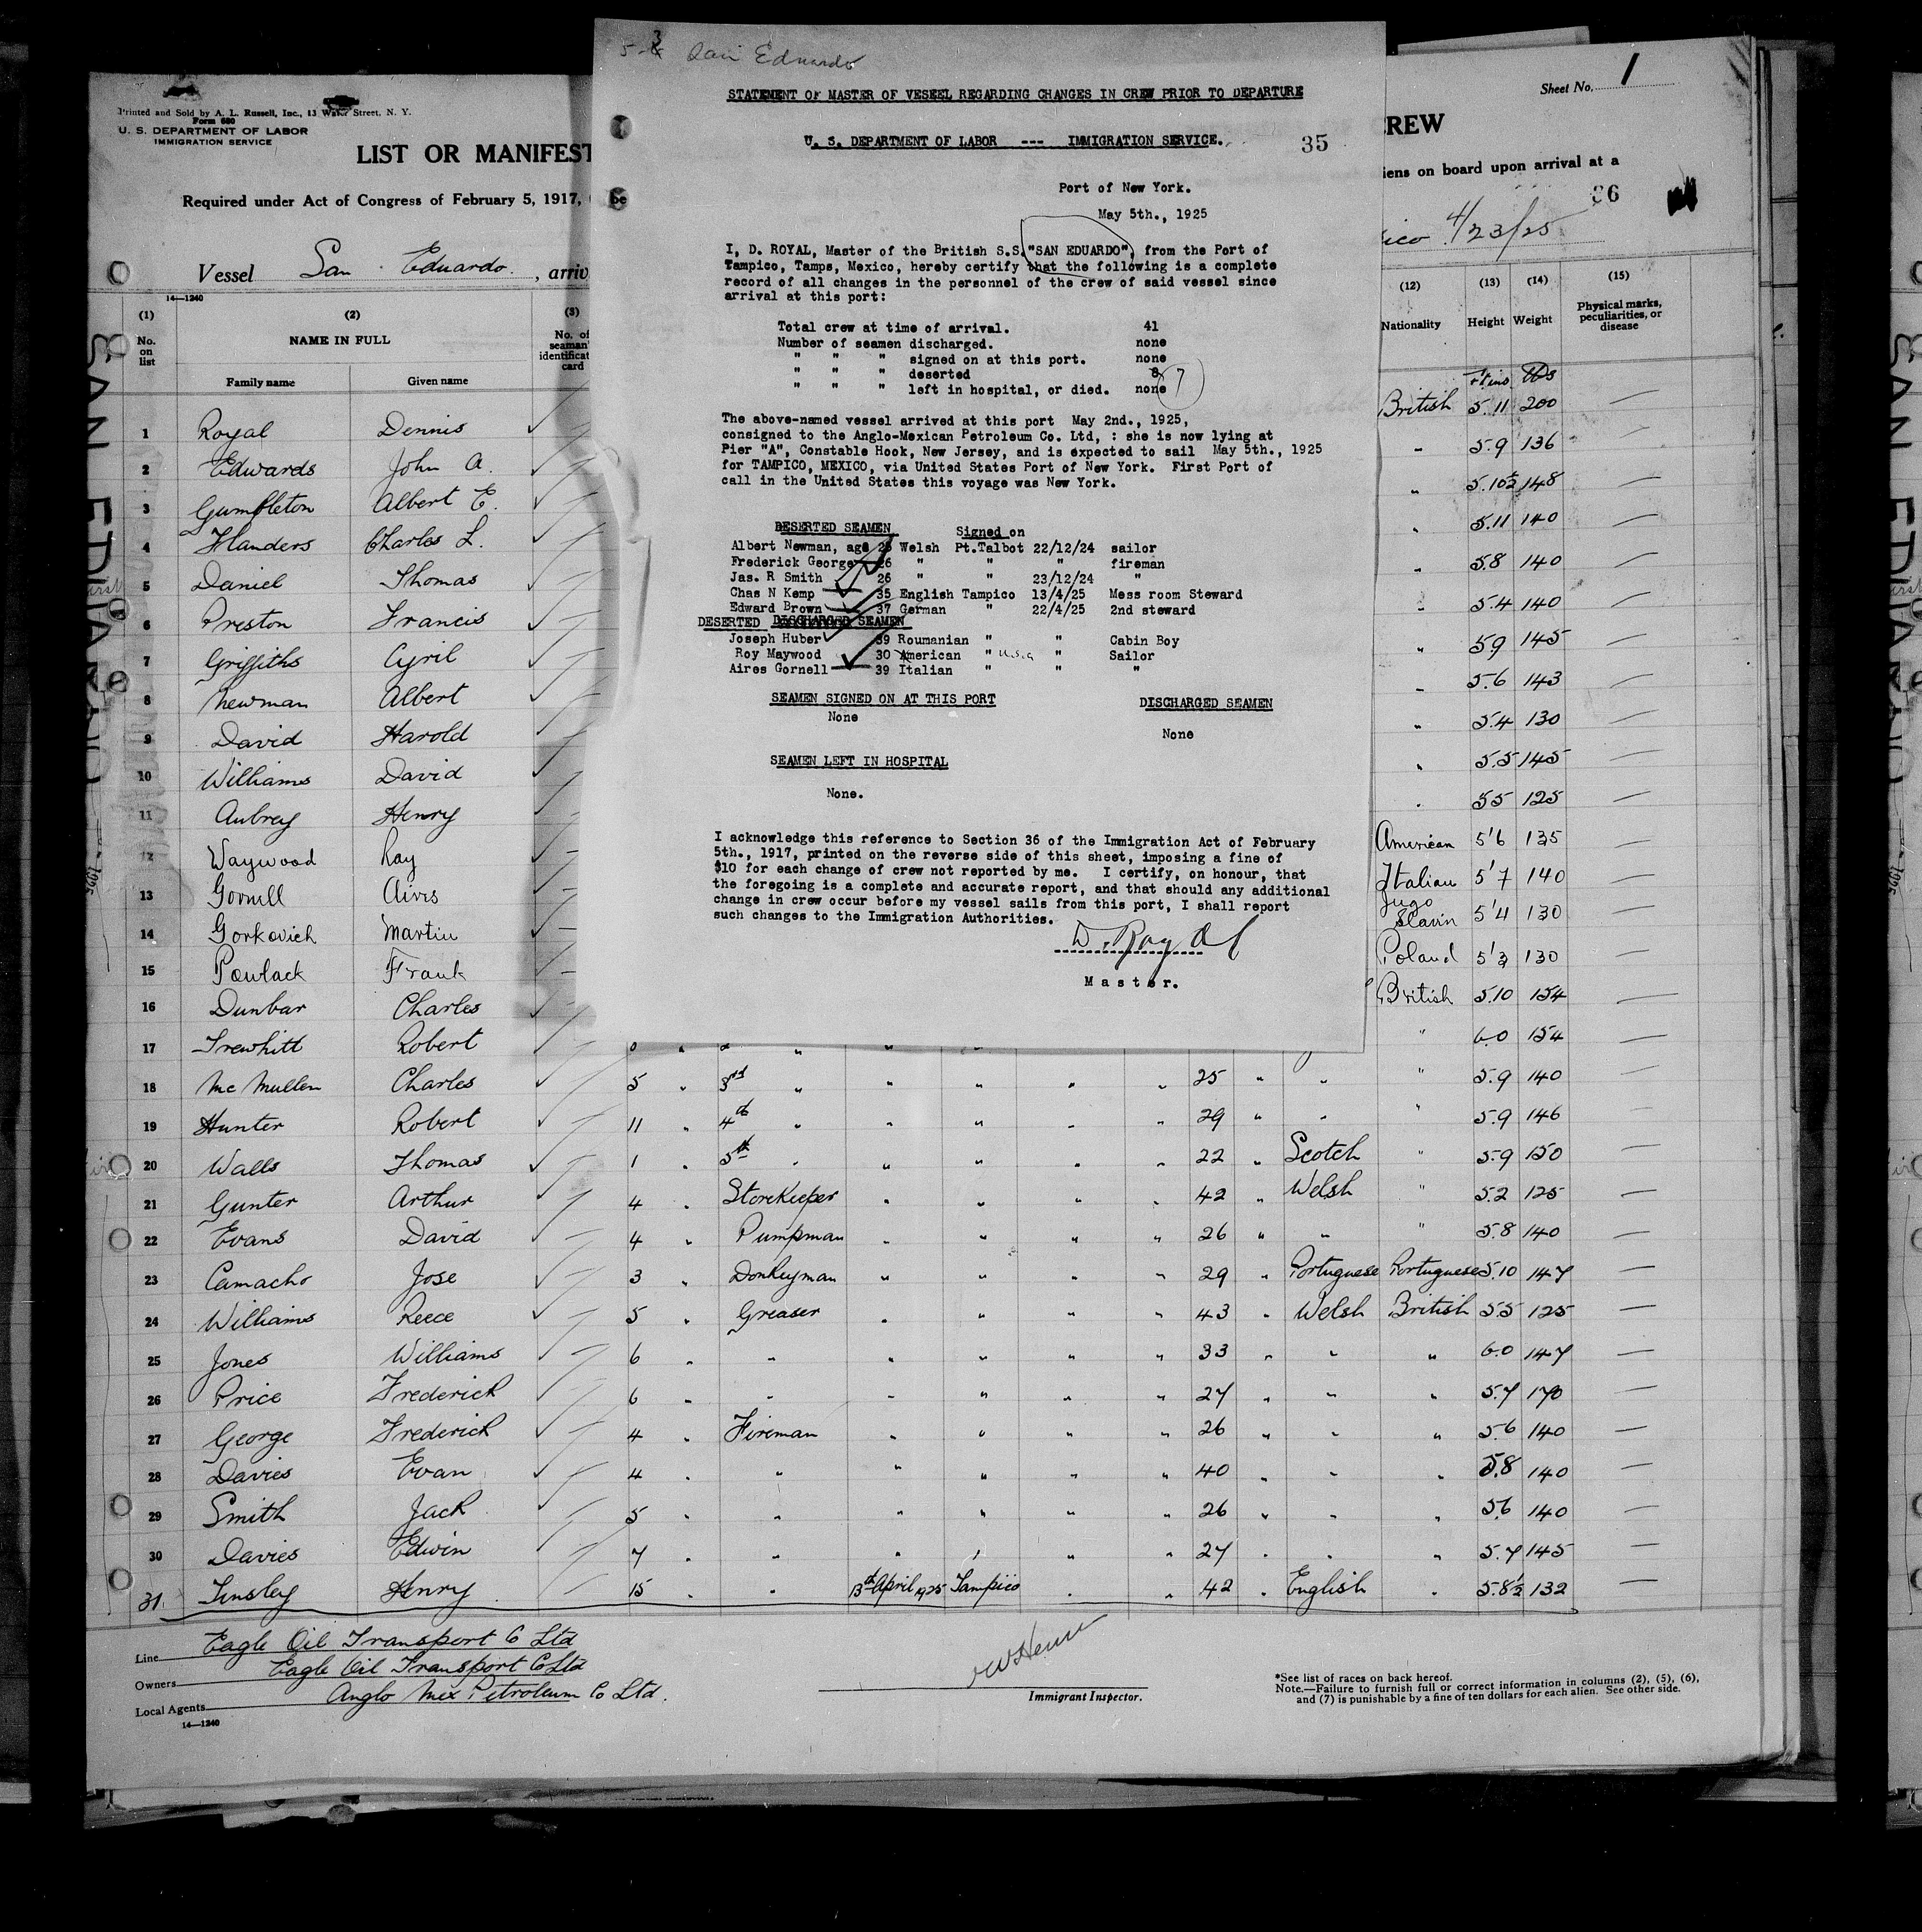 San Eduardo
STATEMENT OF MASTER OF VESSEL REGARDING CHANGES IN CREW PRIOR TO DEPARTURE
U. S. DEPARTMENT OF LABOR --- IMMIGRATION SERVICE.
35
Port of New York.
May 5th., 1925
I, D. ROYAL, Master of the British S.S. "SAN EDUARDO", from the Port of
Tampico, Tamps, Mexico, hereby certify that the following is a complete
record of all changes in the personnel of the crew of said vessel since
arrival at this port:
Total crew at time of arrival. 41
Number of seamen discharged. none
" " " signed on at this port. none
" " " deserted 8 7
" " " left in hospital, or died. none
The above-named vessel arrived at this port May 2nd., 1925,
consigned to the Anglo-Mexican Petroleum Co. Ltd, : she is now lying at
Pier "A", Constable Hook, New Jersey, and is expected to sail May 5th., 1925
for TAMPICO, MEXICO, via United States Port of New York. First Port of
call in the United States this voyage was New York.
DESERTED SEAMEN Signed on
Albert Newman, age 25 Welsh Pt.Talbot 22/12/24 sailor
Frederick George 26 " " " fireman
Jas. R Smith 26 " " 23/12/24 "
Chas N Kemp 35 English Tampico 13/4/25 Mess room Steward
Edward Brown 37 German " 22/4/25 2nd steward
DESERTED DISCHARGED SEAMEN
Joseph Huber 39 Roumanian " " Cabin Boy
Roy Maywood 30 American " U.S.A " Sailor
Aires Gornell 39 Italian " " "
SEAMEN SIGNED ON AT THIS PORT DISCHARGED SEAMEN
None
None
SEAMEN LEFT IN HOSPITAL
None.
I acknowledge this reference to Section 36 of the Immigration Act of February
5th., 1917, printed on the reverse side of this sheet, imposing a fine of
$10 for each change of crew not reported by me. I certify, on honour, that
the foregoing is a complete and accurate report, and that should any additional
change in crew occur before my vessel sails from this port, I shall report
such changes to the Immigration Authorities.
D. Royal
Master.
Printed and Sold by A. L. Russell, Inc., 13 Water Street, N. Y.
Form 680
U. S. DEPARTMENT OF LABOR
IMMIGRATION SERVICE
Sheet No. 1
LIST OR MANIFEST
CREW
Required under Act of Congress of February 5, 1917,
iens on board upon arrival at a
36
Vessel San Eduardo, arriv
ico 4/23/25
14—1240
(1) (2) (3) (12) (13) (14) (15)
No. on list NAME IN FULL No. of seaman's identificat card Nationality Height Weight Physical marks, peculiarities, or disease
Family name Given name
Ft ins lbs
1 Royal Dennis British 5.11 200 —
2 Edwards John A. " 5.9 136 —
3 Gumbleton Albert E. " 5.10½ 148 —
4 Flanders Charles L. " 5.11 140 —
5 Daniel Thomas " 5.8 140 —
6 Preston Francis " 5.4 140 —
7 Griffiths Cyril " 5.9 145 —
8 Newman Albert " 5.6 143 —
9 David Harold " 5.4 130 —
10 Williams David " 5.5 145 —
11 Aubrey Henry " 5.5 125 —
12 Waywood Ray American 5'6 135 —
13 Gornell Airis Italian 5'7 140 —
14 Gorkovich Martin Jugo Slavin 5'4 130 —
15 Pawlack Frank Poland 5'3 130 —
16 Dunbar Charles British 5.10 154 —
17 Trewhitt Robert " 6.0 154 —
18 McMullen Charles 5 " 3rd " " " " " 25 " " " 5.9 140 —
19 Hunter Robert 11 " 4th " " " " " 29 " " " 5.9 146 —
20 Walls Thomas 1 " 5th " " " " " 22 " Scotch " 5.9 150 —
21 Gunter Arthur 4 " Storekeeper " " " " 42 " Welsh " 5.2 125 —
22 Evans David 4 " Pumpman " " " " 26 " " " 5.8 140 —
23 Camacho Jose 3 " Donkeyman " " " " 29 " Portuguese Portuguese 5.10 147 —
24 Williams Reece 5 " Greaser " " " " 43 " Welsh British 5.5 125 —
25 Jones Williams 6 " " " " " " 33 " " " 6.0 147 —
26 Price Frederick 6 " " " " " " 27 " " " 5.7 170 —
27 George Frederick 4 " Fireman " " " " 26 " " " 5.6 140 —
28 Davies Evan 4 " " " " " " 40 " " " 5.8 140 —
29 Smith Jack 5 " " " " " " 26 " " " 5.6 140 —
30 Davies Edwin 7 " " " " " " 27 " " " 5.7 145 —
31 Tinsley Henry 15 " " 13th April 1925 Tampico " " 42 " English " 5.8½ 132 —
Line Eagle Oil Transport Co Ltd
Owners Eagle Oil Transport Co Ltd
Local Agents Anglo Mex Petroleum Co Ltd.
14—1240
Immigrant Inspector.
*See list of races on back hereof.
Note.—Failure to furnish full or correct information in columns (2), (5), (6),
and (7) is punishable by a fine of ten dollars for each alien. See other side.
SAN EDUARDO
SAN EDUARDO